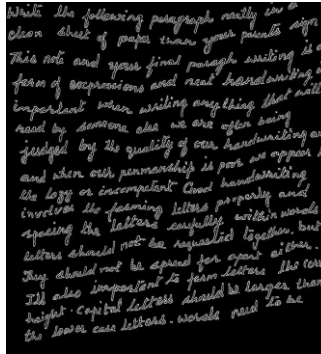 Write the following paragraph neatly in a
clean sheet of paper then your parents sign
This note and your final paragh writing is a
form of expressions and neat handwriting is
important when writing anything that will
read by someone else we are often being
judged by the quality of our handwriting an
and when our penmanship is poor we appear t
the lazy or incompetent Good handwriting
involves the forming letters properly and
spacing the letters carefully within words
letters should not be together. but
They should not be spread far apart either.
I'll also important to form letters the corr
height. Capital letters should be larger than
the lower case letters. words need to be